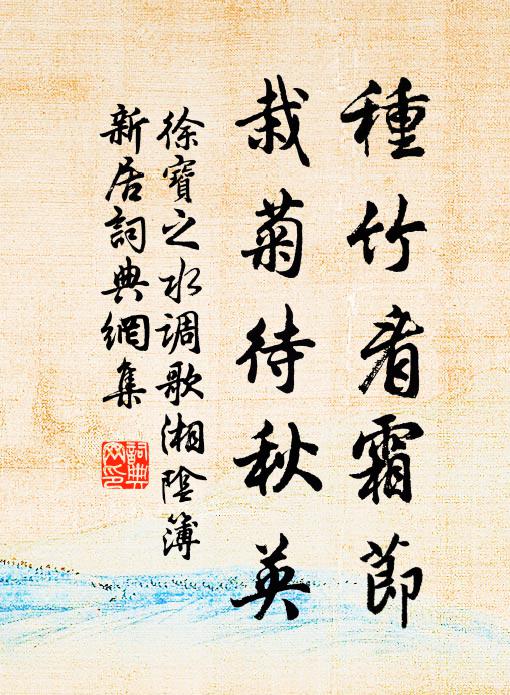 種竹看霜節
栽菊待秋英
徐寶之水调歌湘陰簿
新居詞典網集
詞典網印